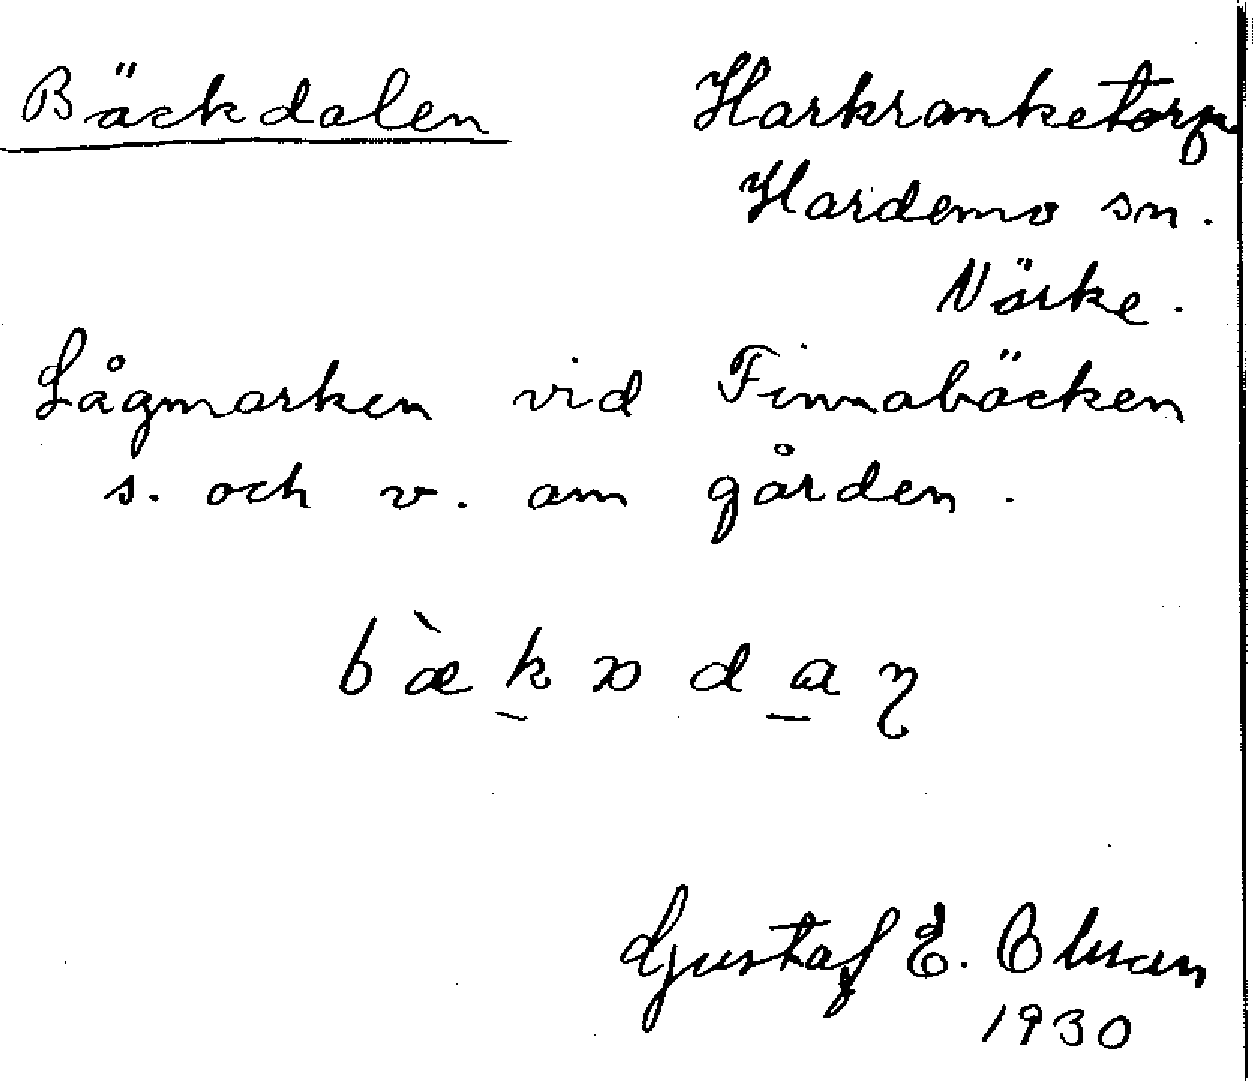 Bäckdalen
Harkranketorp
Hardemo sn.
Närke.
Lågmarken vid Finnabäcken
s. och v. om gården.
Gustaf E.
1930